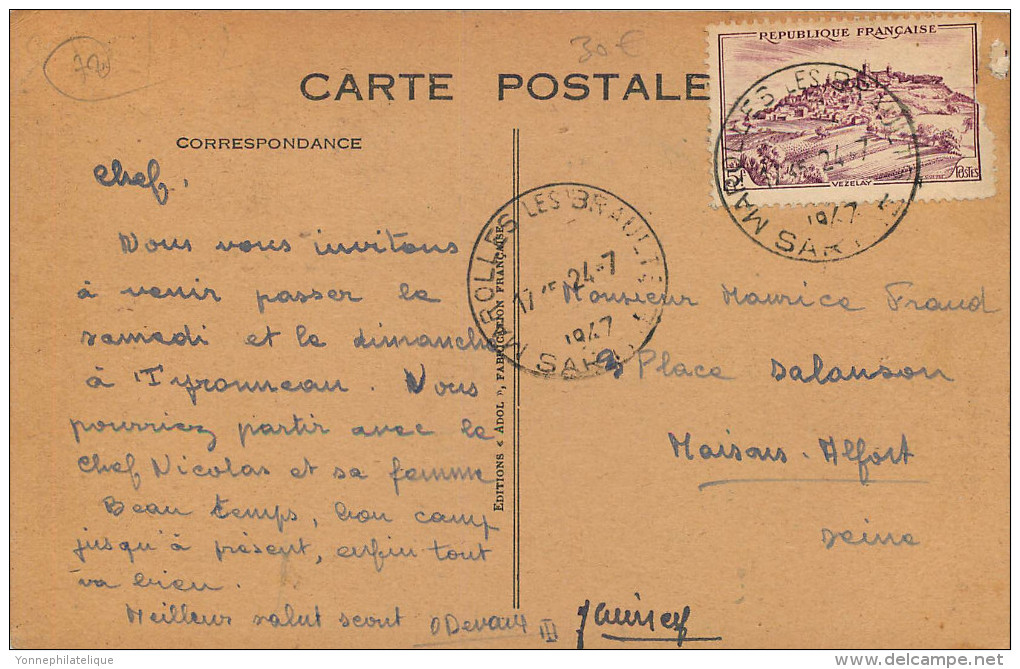 30 €
REPUBLIQUE FRANÇAISE
VEZELAY
POSTES
CARTE POSTALE
MAROLLES LES BRAULTS
17 45 24-7
1947
SARTHE
CORRESPONDANCE
Chef,
Nous vous invitons
à venir passer le
samedi et le dimanche
à Tyronneau. Vous
pourriez partir avec le
chef Nicolas et sa femme
Beau temps, bon camp
jusqu'à présent, enfin tout
va bien.
Meilleur salut scout
EDITIONS « ADOL », FABRICATION FRANÇAISE
MAROLLES LES BRAULTS
17 45 24-7
1947
SARTHE
Monsieur Maurice Fraud
9 Place Dalanson
Maisons-Alfort
Seine
Yonnephilatelique
delcampe.net